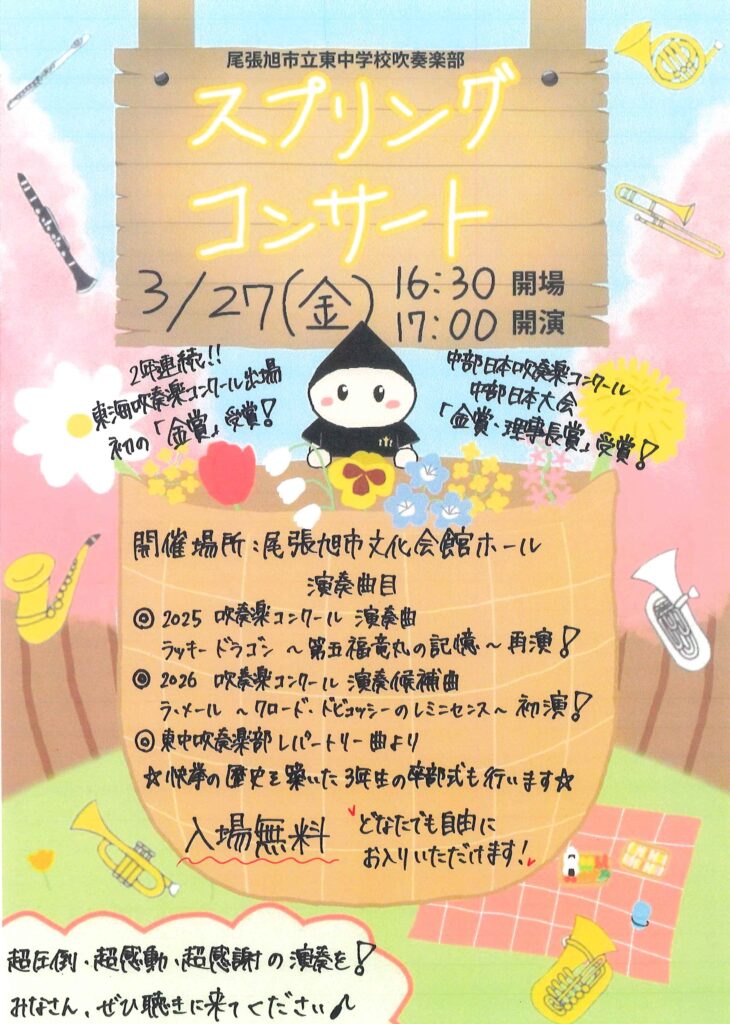 尾張旭市立東中学校吹奏楽部
スプリング
コンサート
3/27(金) 16:30 開場
17:00 開演
2年連続!!
東海吹奏楽コンクール出場
初の「金賞」受賞!
中部日本吹奏楽コンクール
中部日本大会
「金賞・理事長賞」受賞!
開催場所:尾張旭市文化会館ホール
演奏曲目
◎2025 吹奏楽コンクール 演奏曲
ラッキードラゴン ～第五福竜丸の記憶～ 再演!
◎2026 吹奏楽コンクール 演奏候補曲
ラ・メール ～クロード・ドビュッシーのレミニセンス～ 初演!
◎東中吹奏楽部レパートリー曲より
☆快挙の歴史を築いた3年生の卒部式も行います☆
入場無料
どなたでも自由に
お入りいただけます!
超圧倒・超感動・超感謝の演奏を!
みなさん、ぜひ聴きに来てください♪